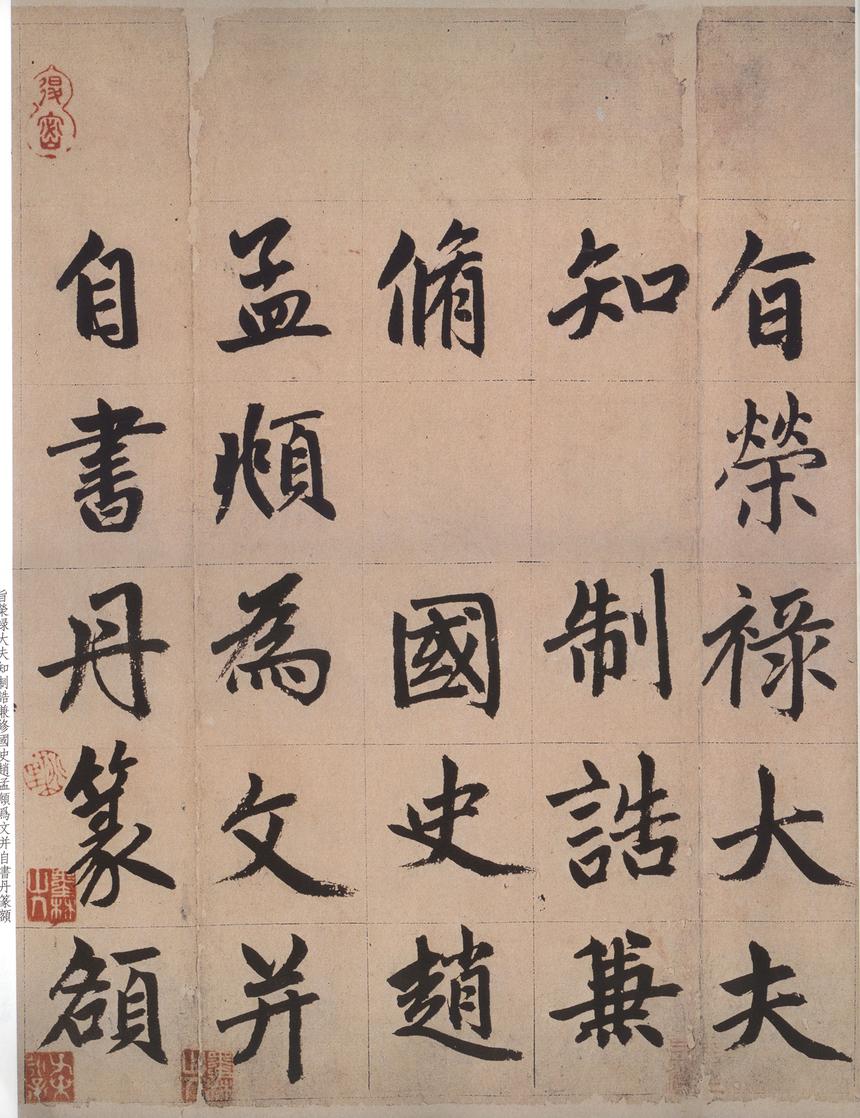 旨榮禄大夫
知制誥兼
脩國史趙
孟頫為文并
自書丹篆額
旨榮禄大夫知制誥兼修國史趙孟頫爲文并自書丹篆額